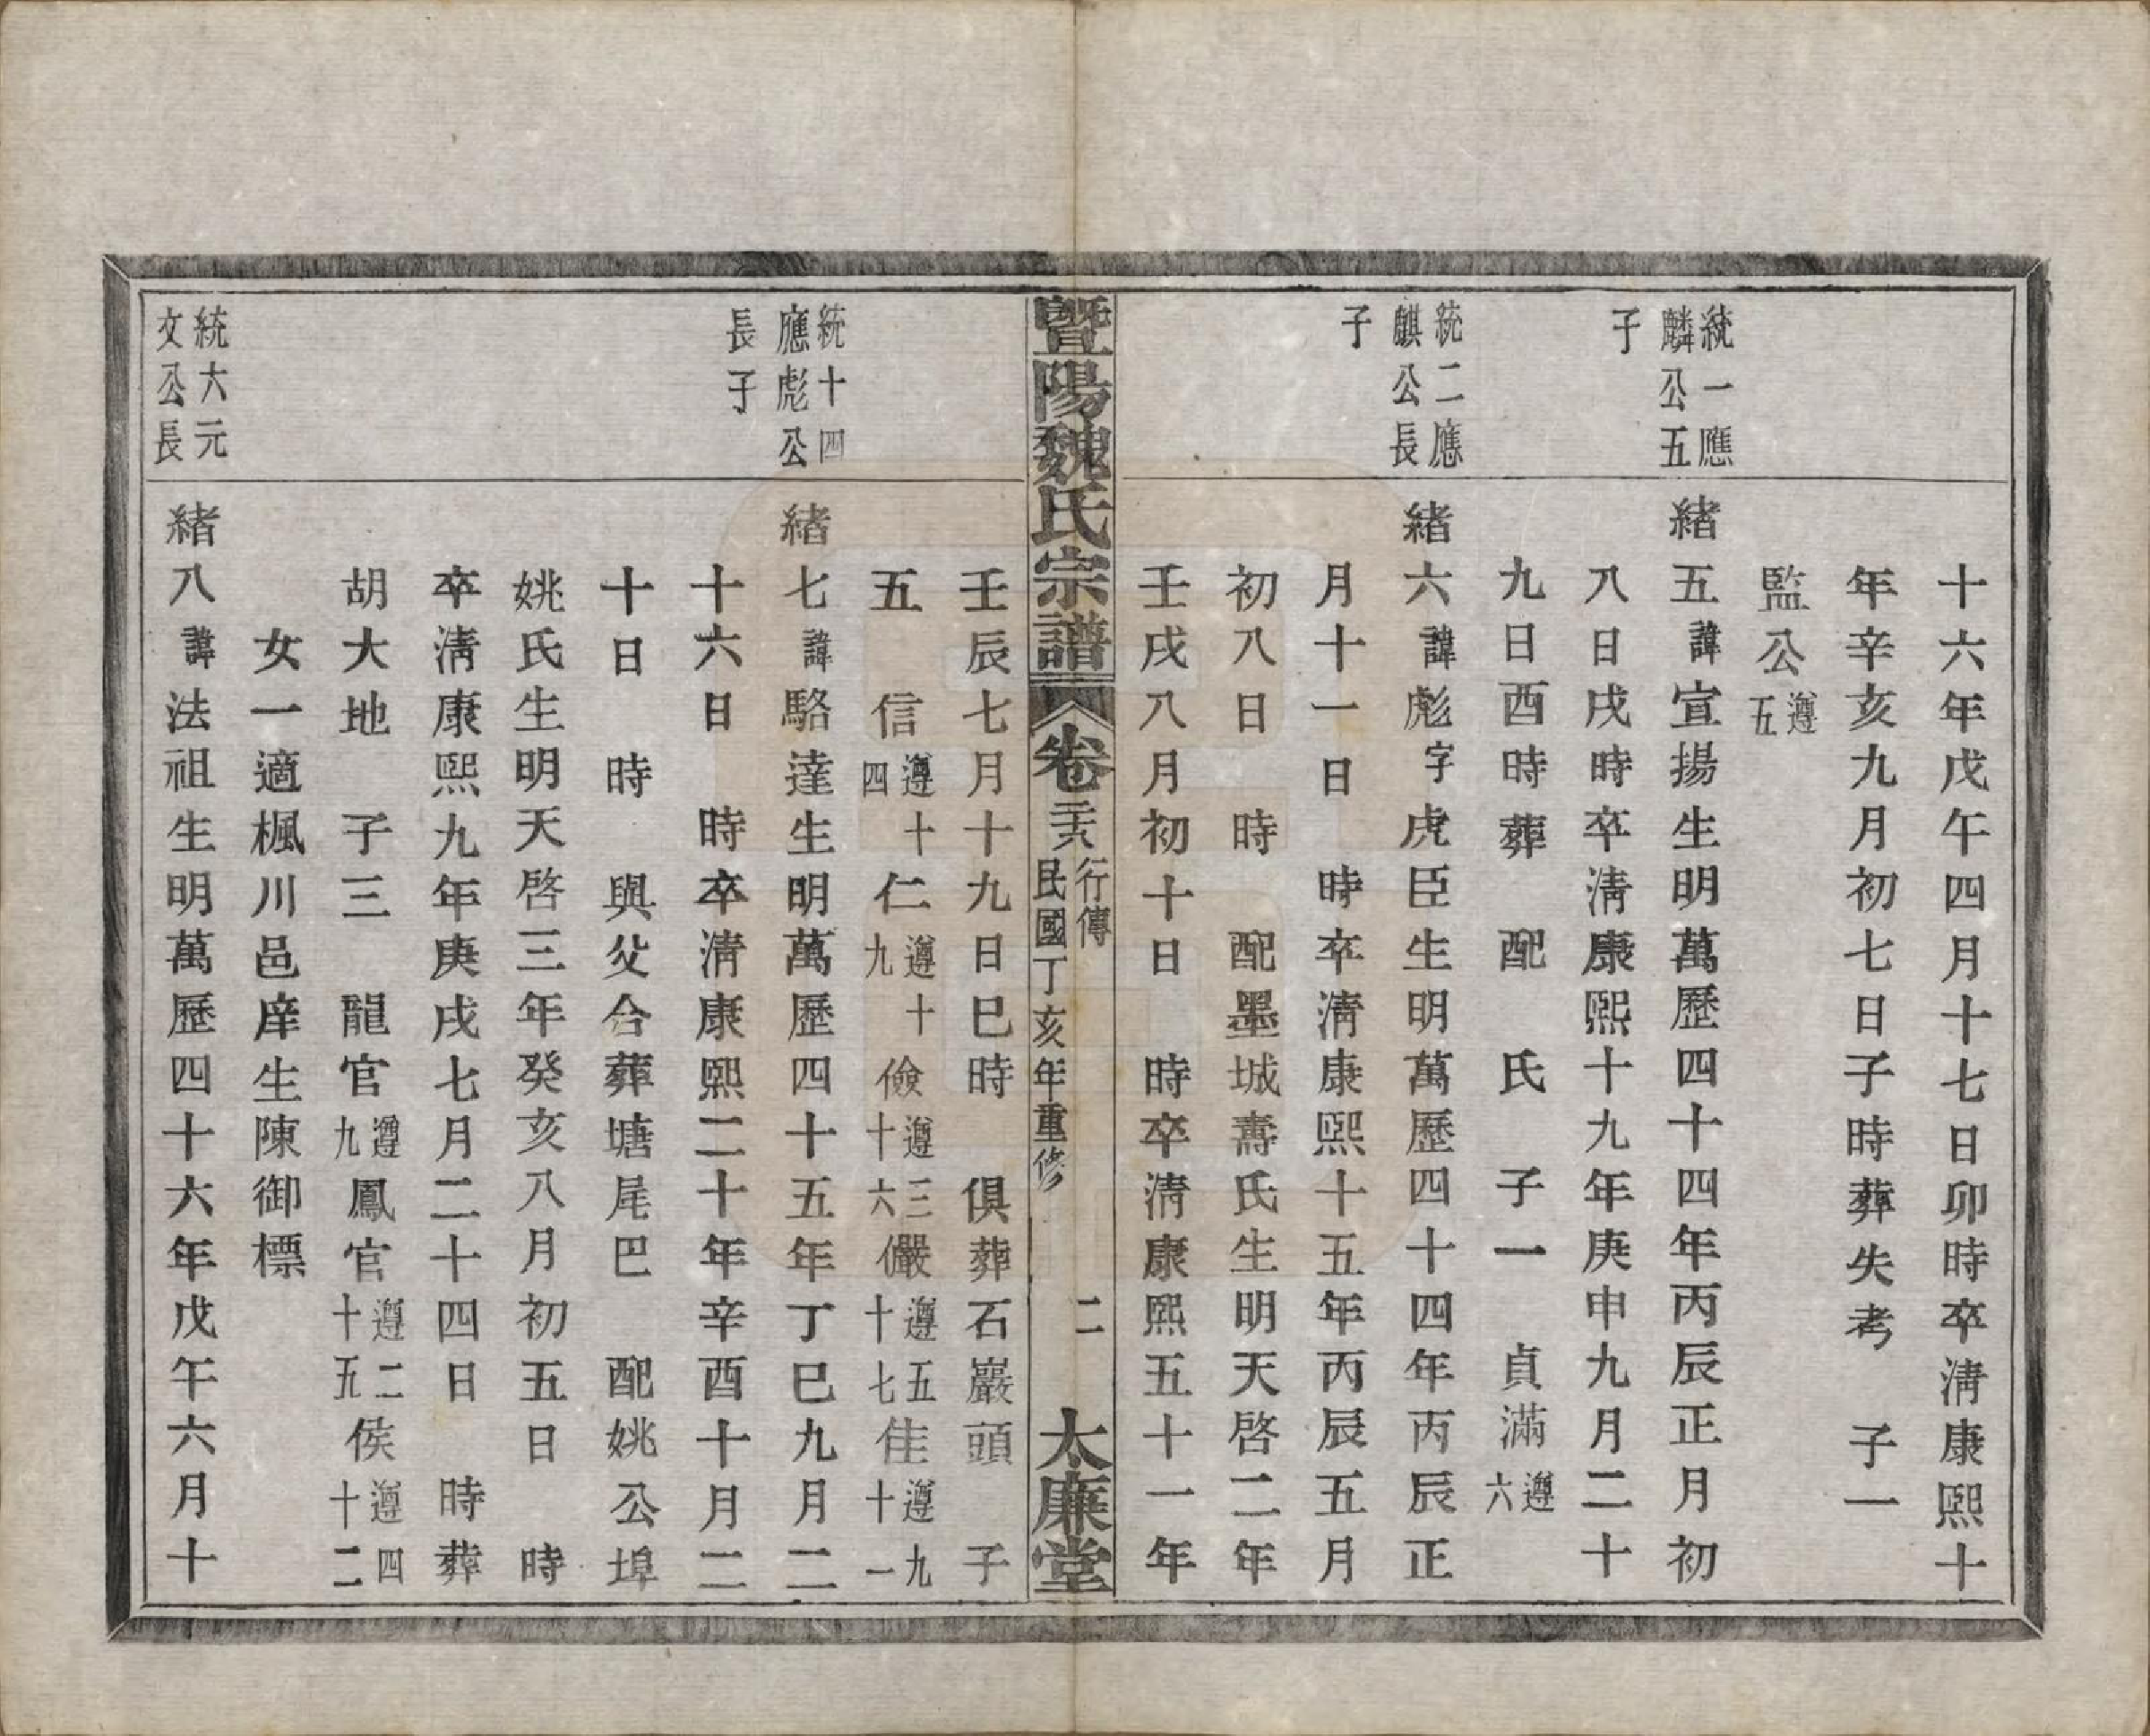 十六年戊午四月十七日卯時卒淸康熙十
年辛亥九月初七日子時葬失考　子一
監公遵五
統一應麟公五子
緒五諱宣揚生明萬歷四十四年丙辰正月初
八日戌時卒淸康熙十九年庚申九月二十
九日酉時葬　配　氏　子一　貞滿遵六
統二應麒公長子
緒六諱彪字虎臣生明萬歷四十四年丙辰正
月十一日　時卒淸康熙十五年丙辰五月
初八日　時　配墨城壽氏生明天啓二年
壬戌八月初十日　時卒淸康熙五十一年
暨陽魏氏宗譜　卷二十六　行傳　民國丁亥年重修　二　太廉堂
壬辰七月十九日巳時　俱葬石巖頭　子
五　信遵十四仁遵十九儉遵三十六儼遵五十七佳遵九十一
統十四應彪公長子
緒七諱駱達生明萬歷四十五年丁巳九月二
十六日　時卒淸康熙二十年辛酉十月二
十日　時　與父合葬塘尾巴　配姚公埠
姚氏生明天啓三年癸亥八月初五日　時
卒淸康熙九年庚戌七月二十四日　時葬
胡大地　子三　龍官遵九鳳官遵二十五侯遵四十二
女一適楓川邑庠生陳御標
統大元文公長
緒八諱法祖生明萬歷四十六年戊午六月十